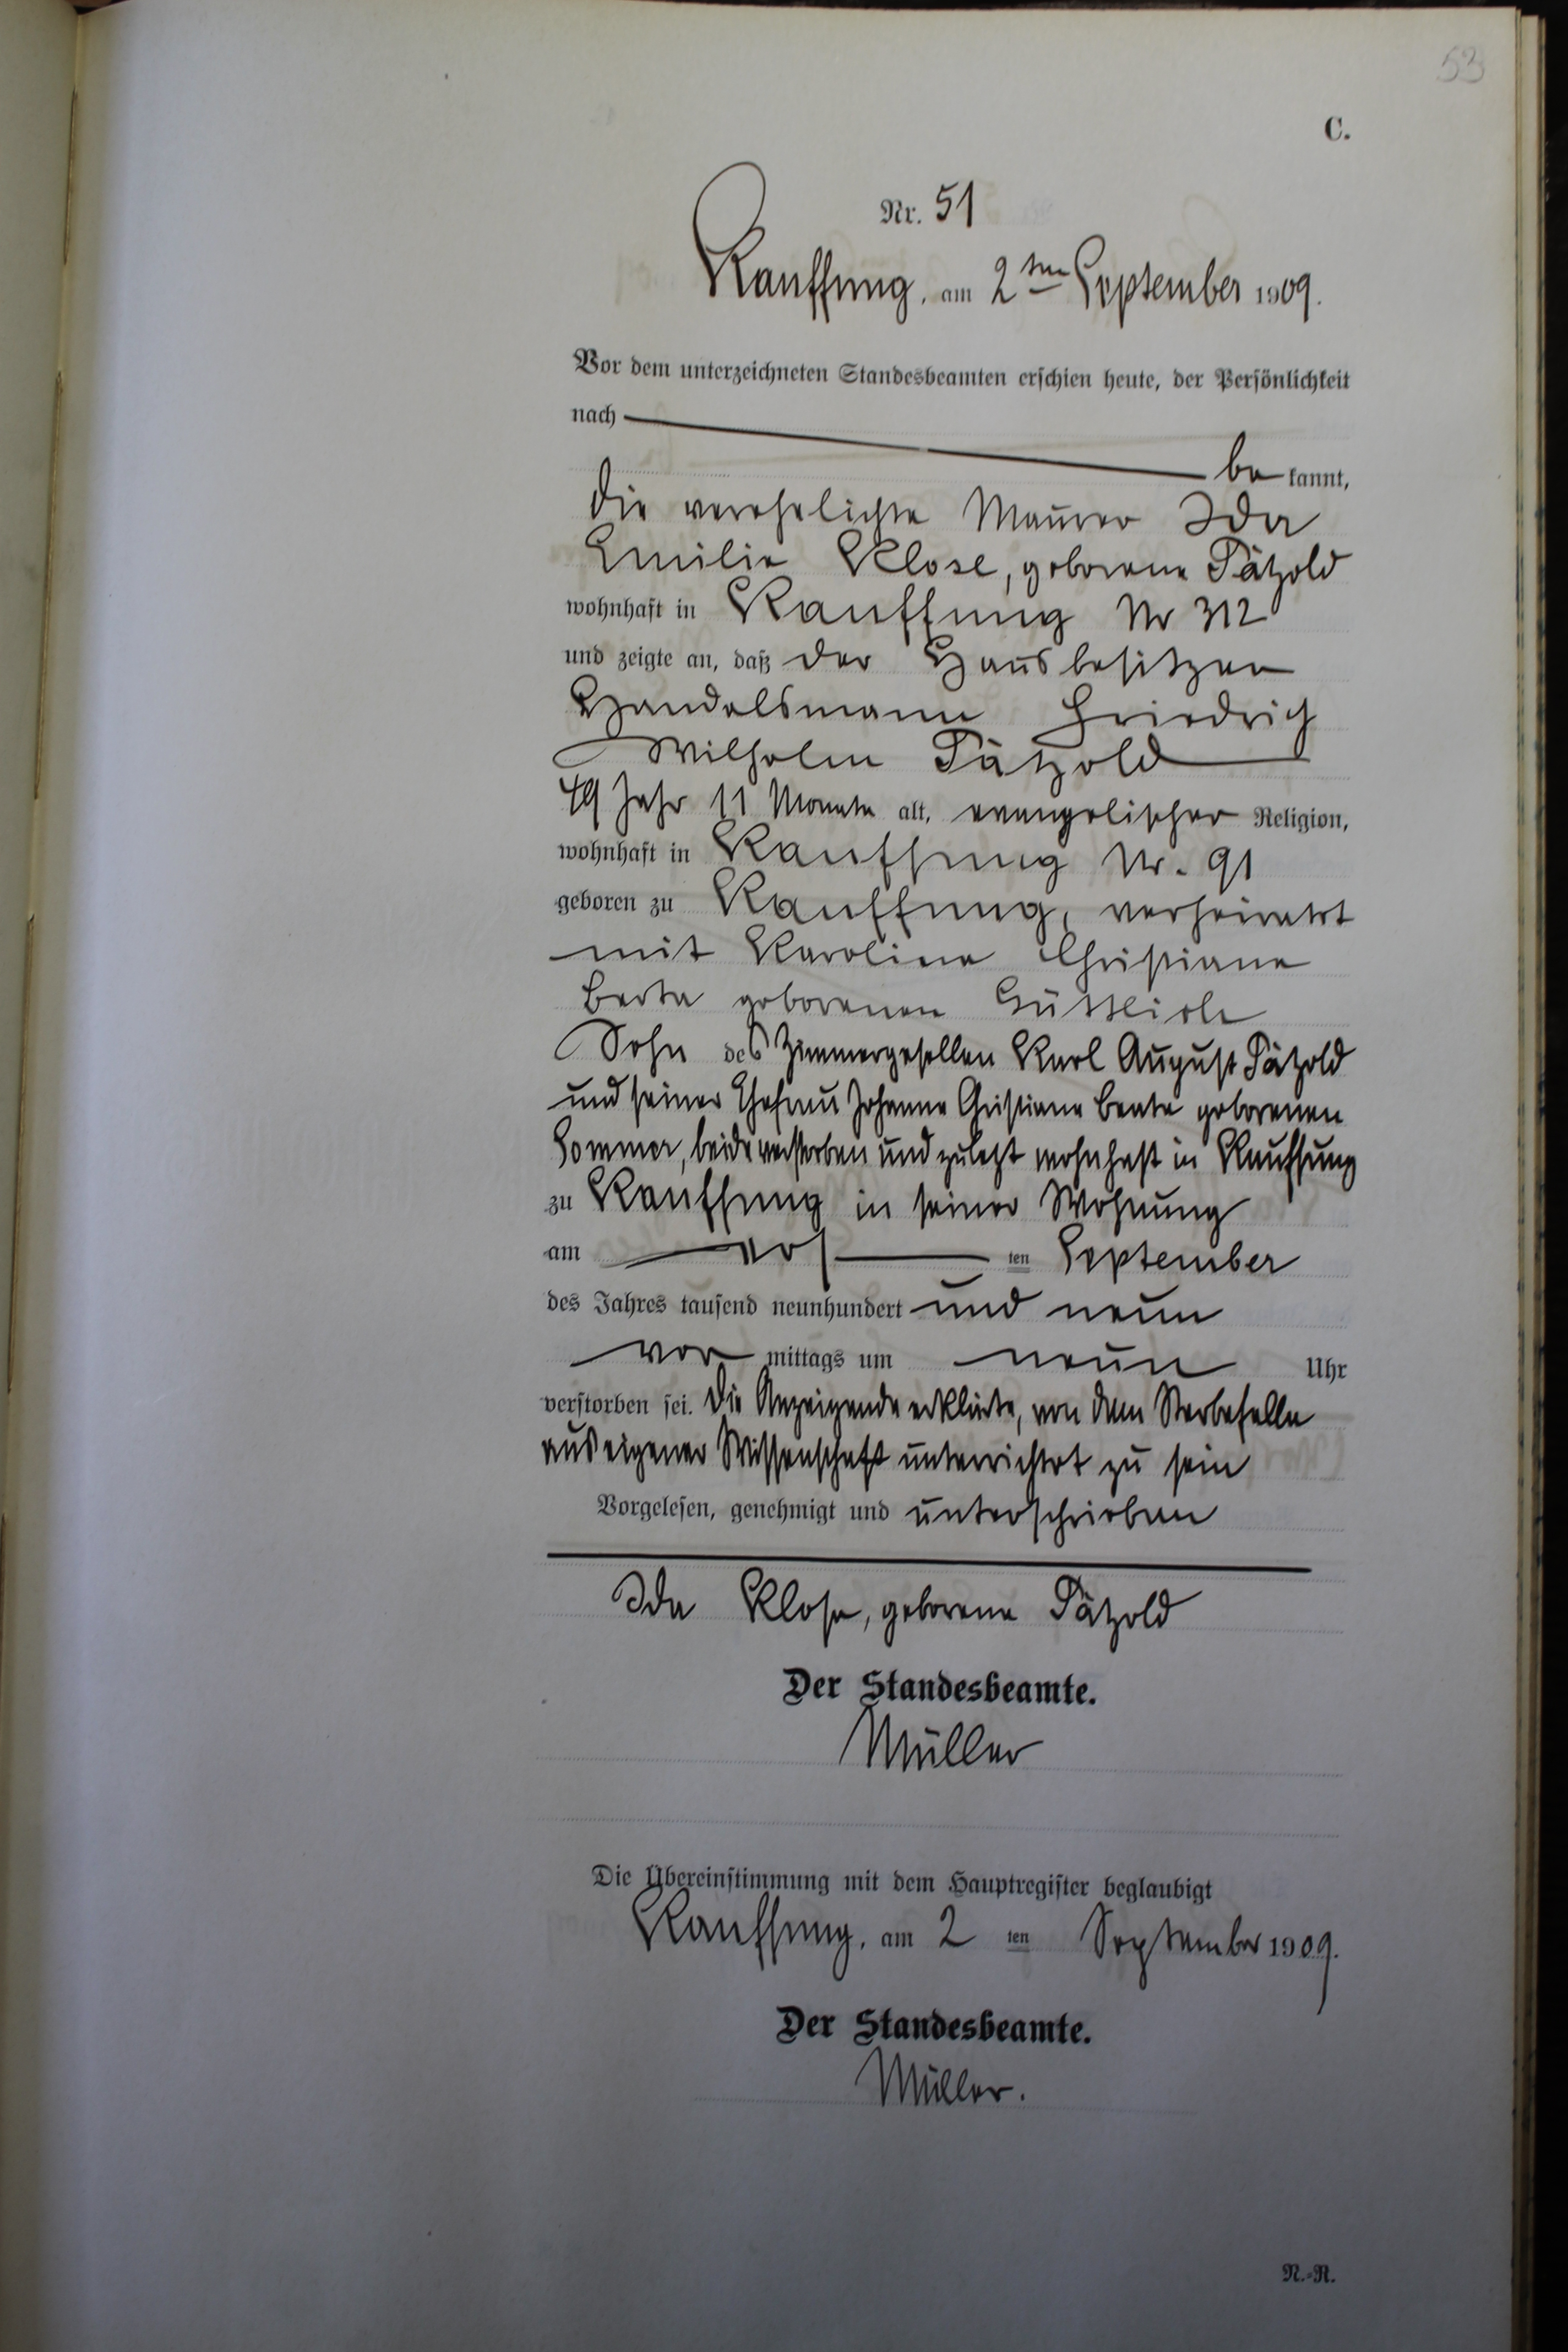 53
C.
Nr. 51
Kauffung, am 2ten September 1909.
Vor dem unterzeichneten Standesbeamten erschien heute, der Persönlichkeit
nach
be kannt,
die verehelichte Maurer Ida
Emilie Klose, geborene Pätzold
wohnhaft in Kauffung Nr 312
und zeigte an, daß der Hausbesitzer
Handelsmann Friedrich
Wilhelm Pätzold
49 Jahr 11 Monate alt, evangelischer Religion,
wohnhaft in Kauffung Nr. 91
geboren zu Kauffung, verheiratet
mit Karoline Christiane
geborenen
Sohn des Zimmergesellen Karl August Pätzold
und seiner Ehefrau Johanne Christiane Beate geborenen
Sommer, beide verstorben und zuletzt wohnhaft in Kauffung
zu Kauffung in seiner Wohnung
am ersten September
des Jahres tausend neunhundert und neun
vor mittags um neun Uhr
verstorben sei. Die Anzeigende erklärte, von dem Sterbefalle
aus eigener Wissenschaft unterrichtet zu sein
Vorgelesen, genehmigt und unterschrieben
Ida Klose, geborene Pätzold
Der Standesbeamte.
Müller
Die Übereinstimmung mit dem Hauptregister beglaubigt
Kauffung, am 2 ten September 1909.
Der Standesbeamte.
Müller.
N.-R.